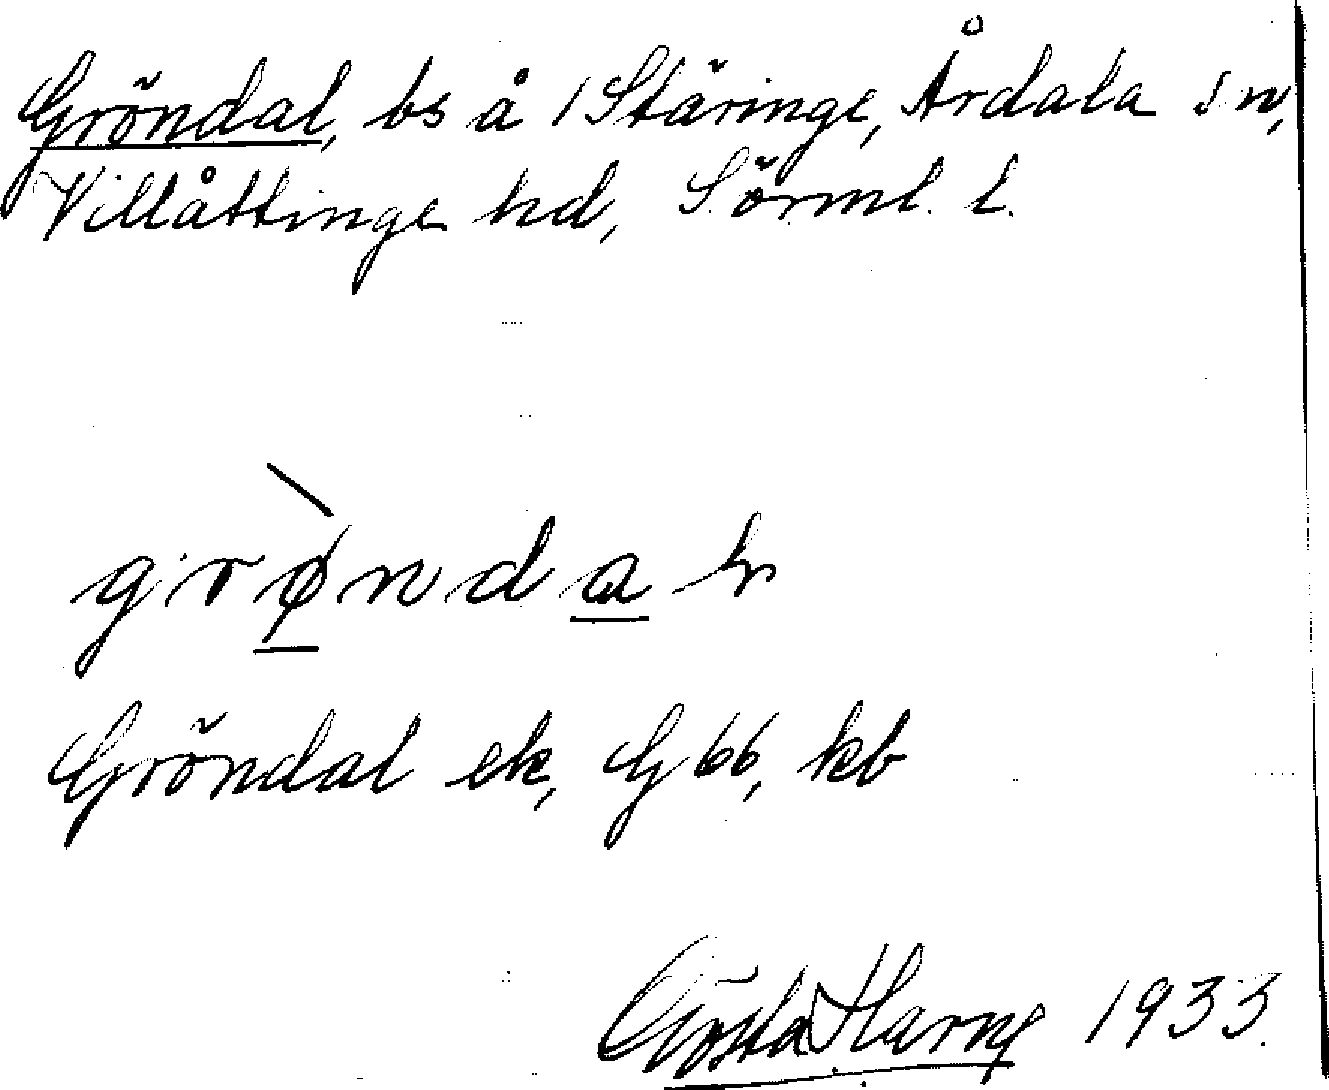 Gröndal, bs å 1 Stäringe, Årdala sn,
Villåttinge hd, Sörml. l.
grø̱̀nda̱ḷ
Gröndal ek, G 66, kb
Gösta Harne 1933.